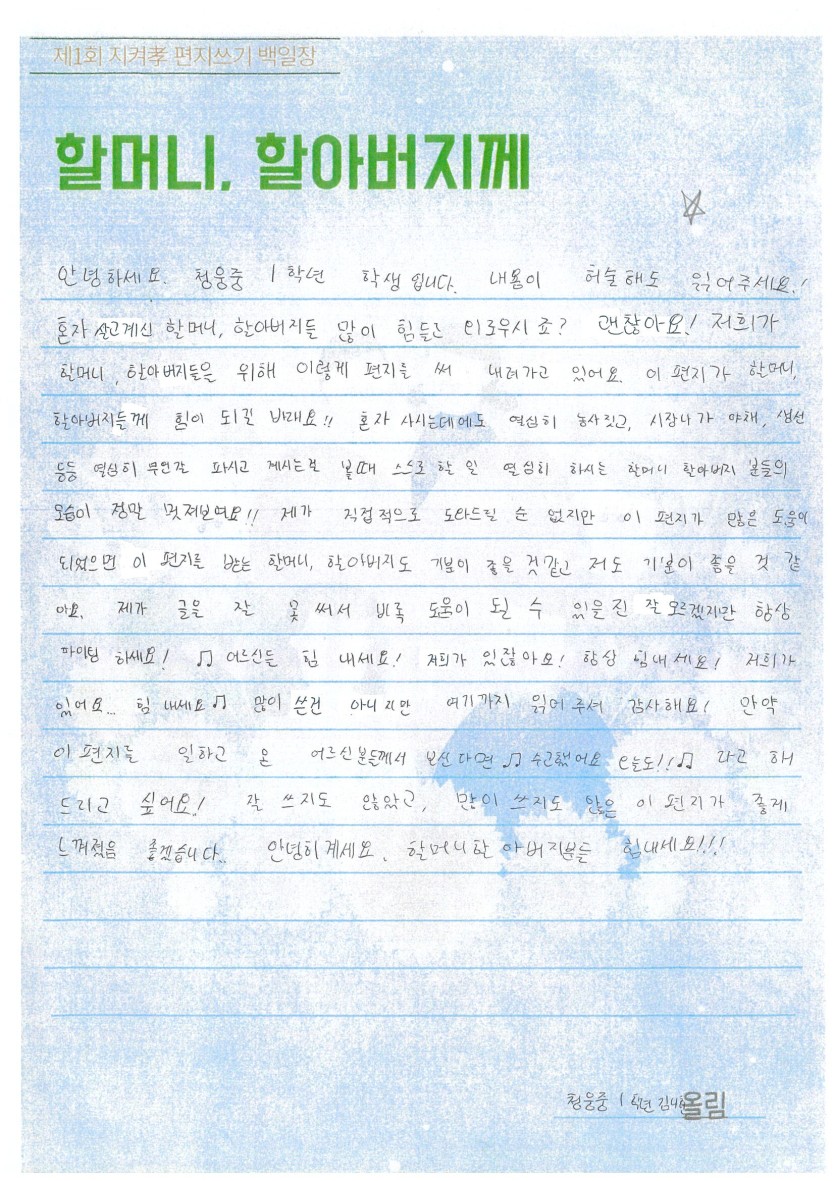 제1회 지켜孝 편지쓰기 백일장
할머니, 할아버지께
안녕하세요. 청웅중 1학년 학생입니다. 내용이 허술해도 읽어주세요!
혼자 살고계신 할머니, 할아버지들 많이 힘들고 외로우시죠? 괜찮아요! 저희가
할머니, 할아버지들은 위해 이렇게 편지를 써 내려가고 있어요. 이 편지가 할머니,
할아버지들께 힘이 되길 바래요!! 혼자 사시는데에도 열심히 농사짓고, 시장나가 야채, 생선
등등 열심히 무언갈 파시고 계시는걸 볼때 스스로 할 일 열심히 하시는 할머니 할아버지 분들의
모습이 정말 멋져보여요!! 제가 직접적으로 도와드릴 순 없지만 이 편지가 많은 도움이
되었으면 이 편지를 받는 할머니, 할아버지도 기분이 좋을 것같고 저도 기분이 좋을 것 같
아요. 제가 글을 잘 못 써서 비록 도움이 될 수 있을진 잘 모르겠지만 항상
파이팅 하세요! ♫ 어르신들 힘 내세요! 저희가 있잖아요! 항상 힘내세요! 저희가
있어요.. 힘 내세요♫ 많이 쓴건 아니지만 여기까지 읽어 주셔 감사해요! 만약
이 편지를 일하고 온 어르신분들께서 보신다면 ♫ 수고했어요 오늘도!!♫ 라고 해
드리고 싶어요! 잘 쓰지도 않았고, 많이 쓰지도 않은 이 편지가 좋게
느껴졌음 좋겠습니다.. 안녕히계세요. 할머니할아버지분들 힘내세요!!!
청웅중 1학년 김 올림